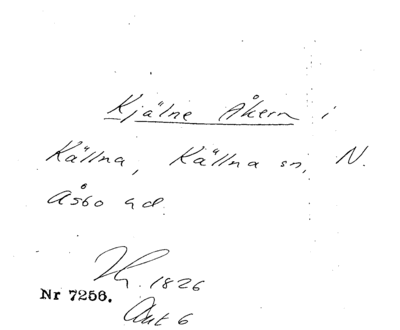 Kjälne Åkern i
Källna, Källna sn, N.
Åsbo hd.
1826
Nr 7256.
Akt 6